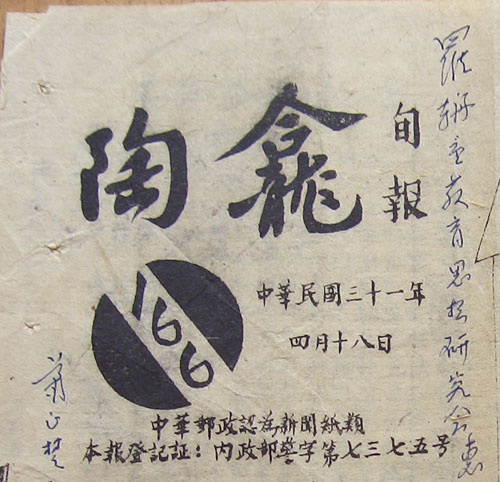 陶龕
旬報
166
中華民國三十一年
四月十八日
中華郵政認為新聞紙類
本報登記証：內政部警字第七三七五号
羅辀重教育思想研究会惠